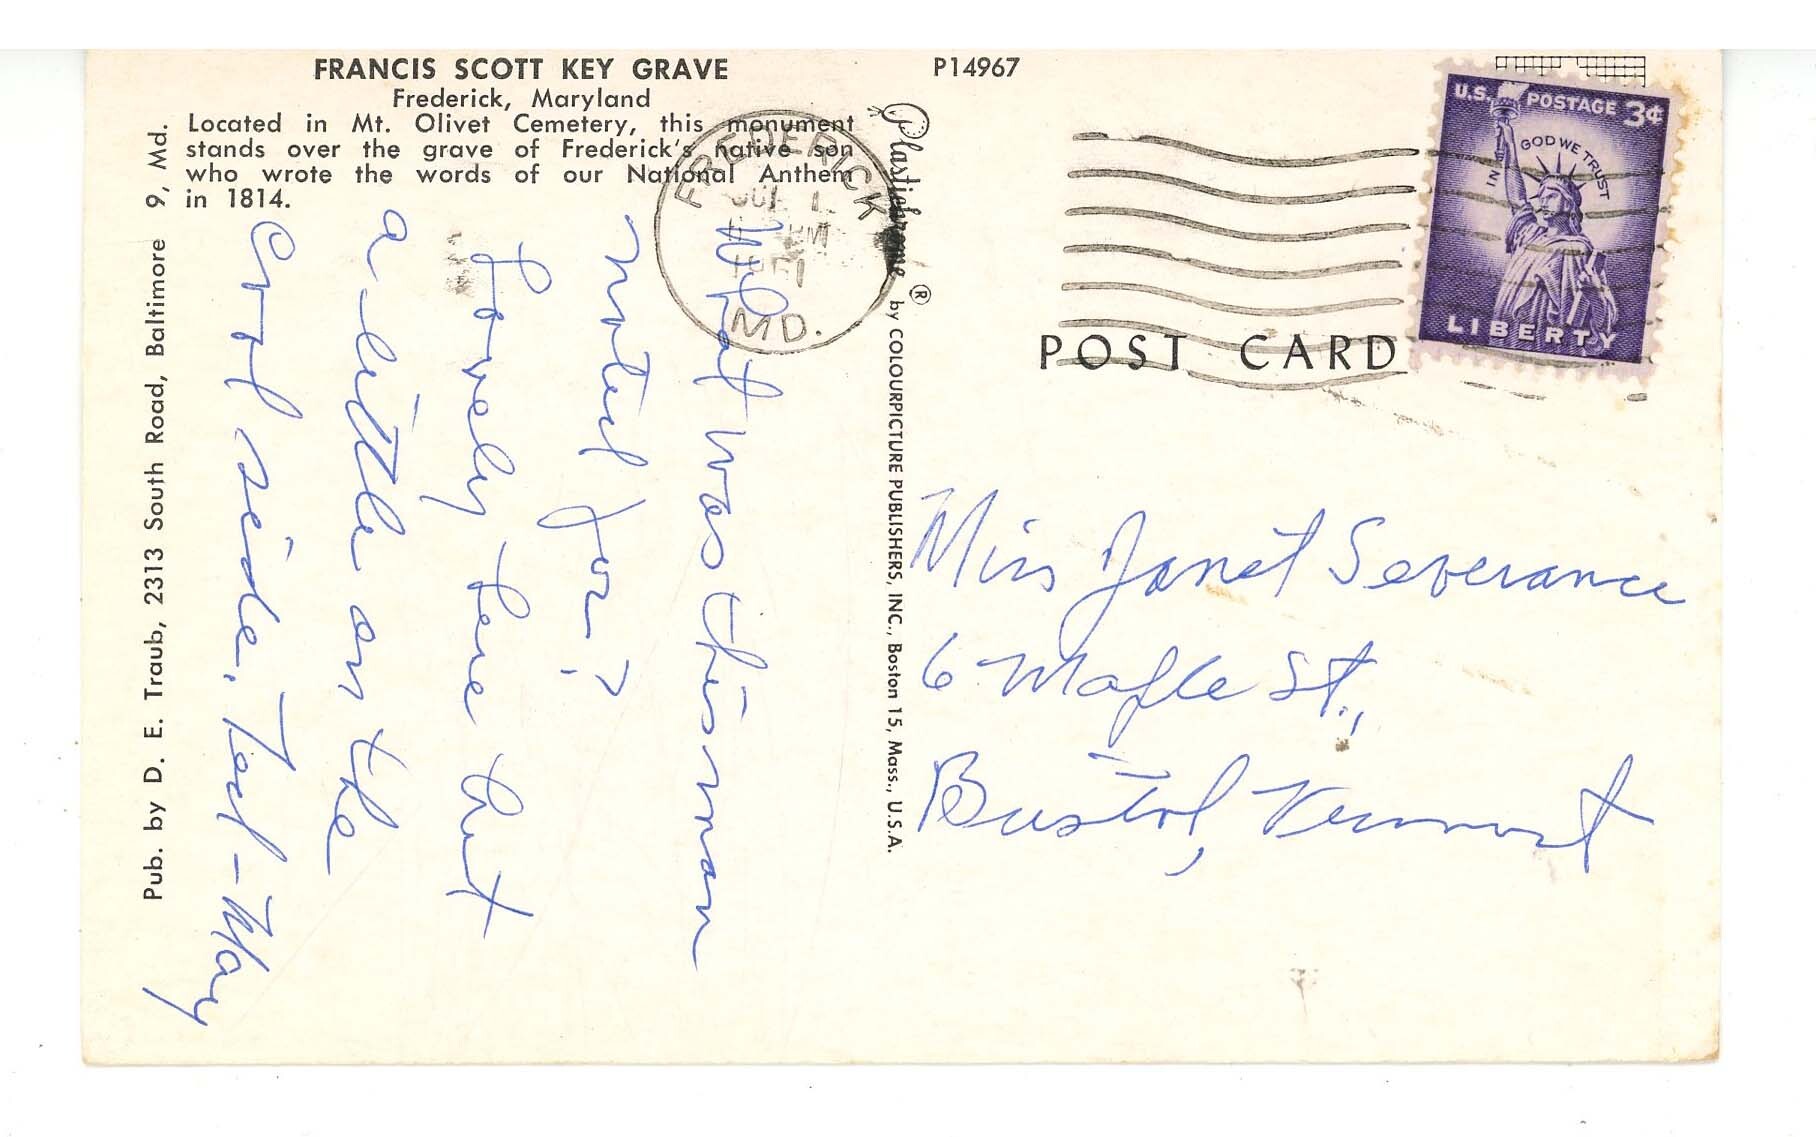 FRANCIS SCOTT KEY GRAVE
Frederick, Maryland
Located in Mt. Olivet Cemetery, this monument
stands over the grave of Frederick's native son
who wrote the words of our National Anthem
in 1814.
Pub. by D. E. Traub, 2313 South Road, Baltimore 9, Md.
What was this man
noted for?
Lovely here but
a little on the
cool side. Ted - Mary
P14967
Plastichrome ® by COLOURPICTURE PUBLISHERS, INC., Boston 15, Mass., U.S.A.
FREDERICK
MD.
U.S. POSTAGE 3¢
IN GOD WE TRUST
LIBERTY
POST CARD
Miss Janet Severance
6 Maple St.,
Bristol, Vermont